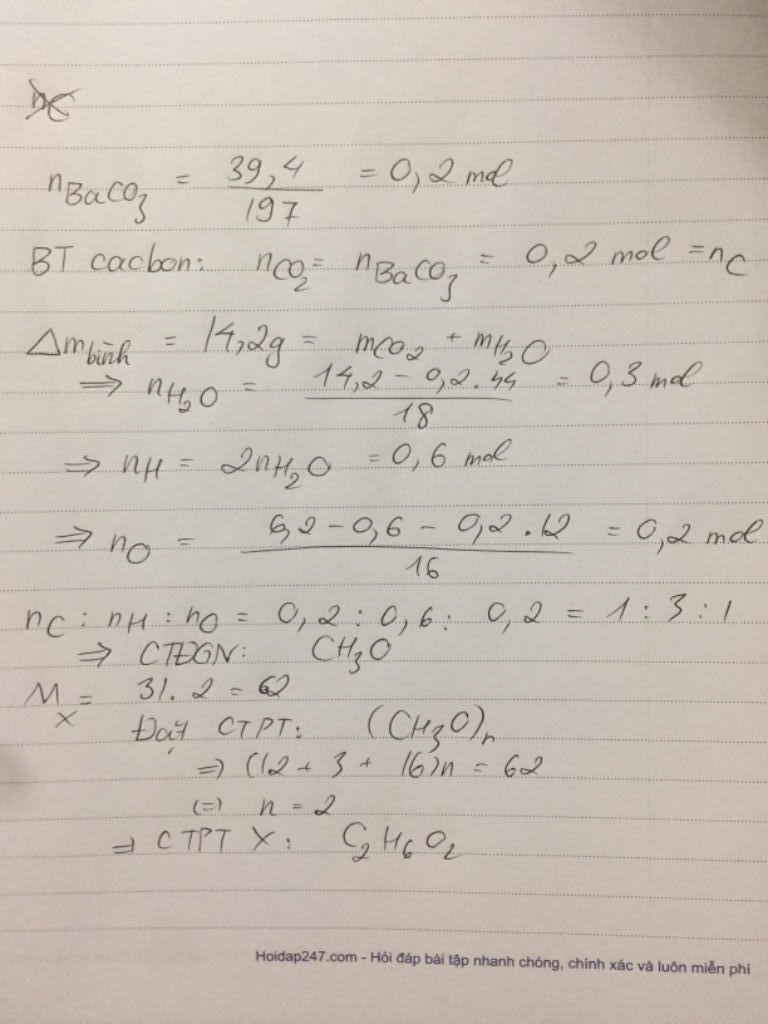 nC
nBaCO3 = 39,4 / 197 = 0,2 mol
BT cacbon: nCO2 = nBaCO3 = 0,2 mol = nC
Δm bình = 14,2g = mCO2 + mH2O
⇒ nH2O = 14,2 - 0,2.44 / 18 = 0,3 mol
⇒ nH = 2nH2O = 0,6 mol
⇒ nO = 6,2 - 0,6 - 0,2.12 / 16 = 0,2 mol
nC : nH : nO = 0,2 : 0,6 : 0,2 = 1 : 3 : 1
⇒ CTĐGN: CH3O
MX = 31.2 = 62
Đặt CTPT: (CH3O)n
⇒ (12 + 3 + 16)n = 62
(=) n = 2
⇒ CTPT X: C2H6O2
Hoidap247.com - Hỏi đáp bài tập nhanh chóng, chính xác và luôn miễn phí